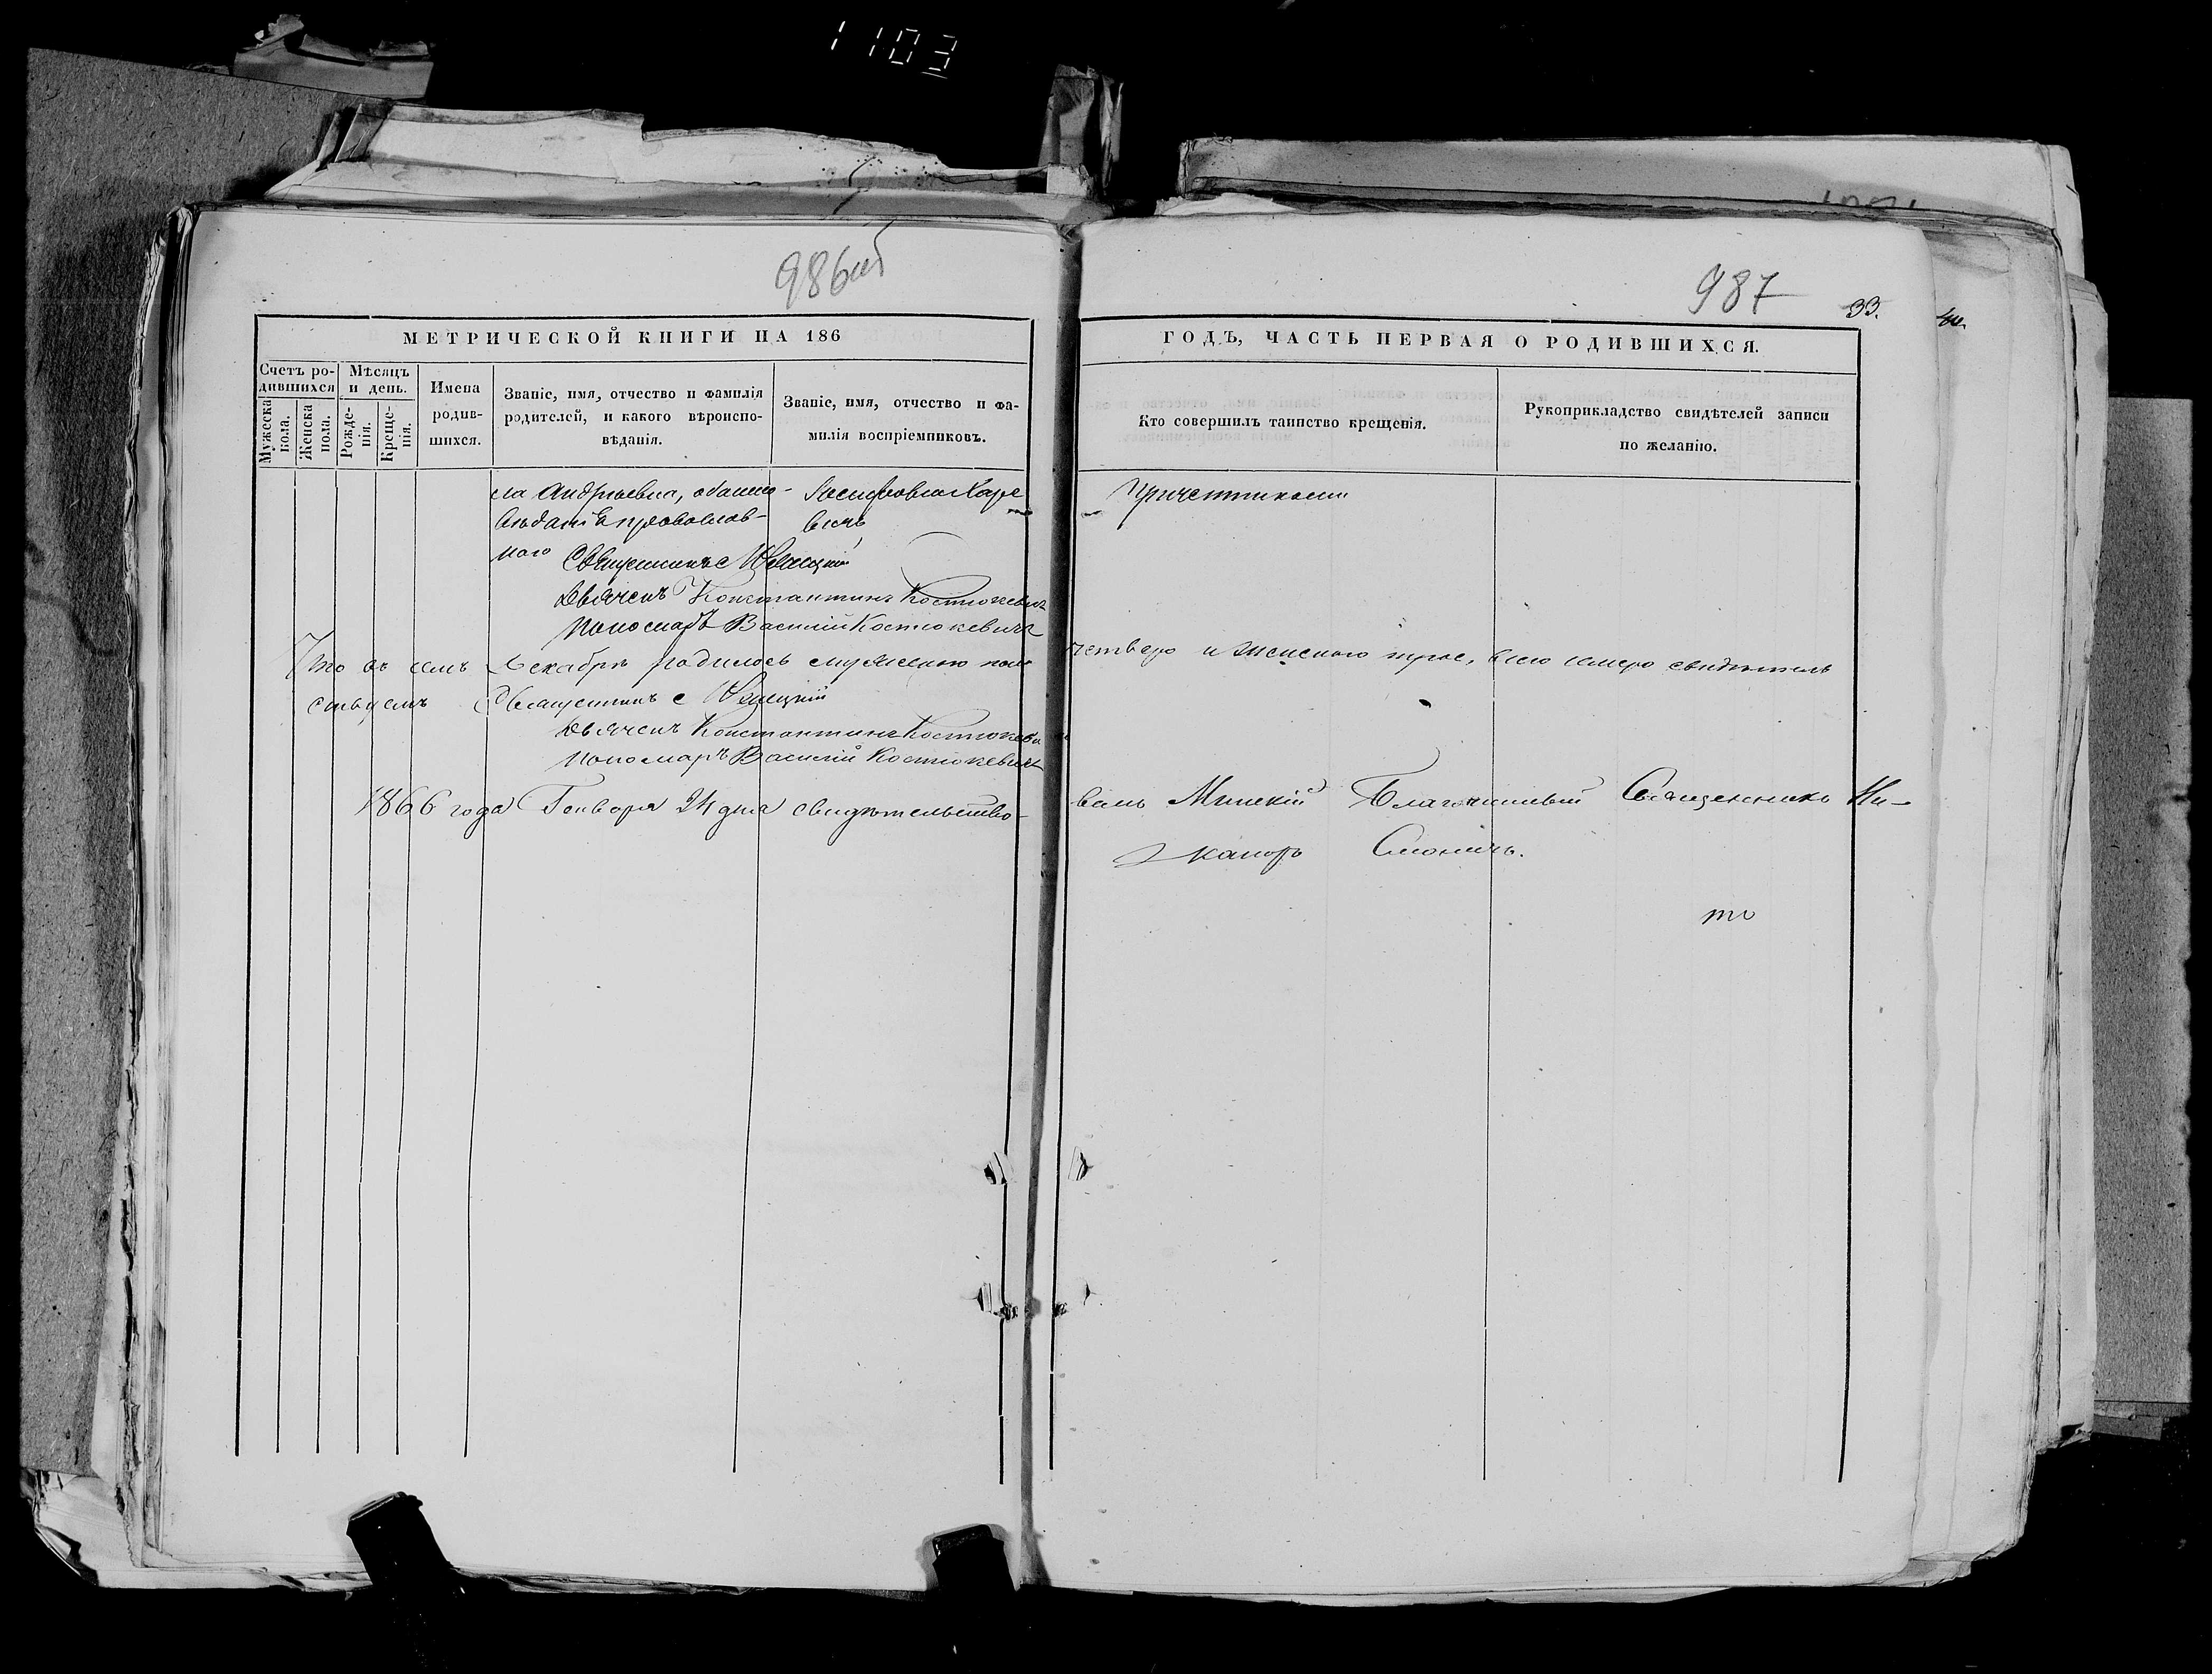 1103
986об
987
33.
МЕТРИЧЕСКОЙ КНИГИ НА 186
ГОДЪ, ЧАСТЬ ПЕРВАЯ О РОДИВШИХСЯ.
Счетъ ро-
дившихся
Мужеска
пола.
Женска
пола.
Мѣсяцъ
и день.
Рожде-
нія.
Креще-
нія.
Имена
родив-
шихся.
Званіе, имя, отчество и фамилія
родителей, и какого вѣроиспо-
вѣданія.
Званіе, имя, отчество и фа-
милія воспріемниковъ.
Кто совершилъ таинство крещенія.
Рукоприкладство свидѣтелей записи
по желанію.
ла Андреевна, оба испо-
вѣданія православ-
наго
вичъ
Причетниками
Священникъ
Дьячекъ Константинъ Костюкевичъ
Пономарь Василій Костюкевичъ
Что въ семъ Декабрѣ родилось мужескаго пола четверо и женскаго трое, всего семеро свидѣтель
ствуемъ Священникъ
Дьячекъ Константинъ Костюкевичъ
Пономарь Василій Костюкевичъ
1866 года Генваря 24 дня свидѣтельство-
валъ Минскій Благочинный Священникъ Ни-
каноръ Смоличъ.